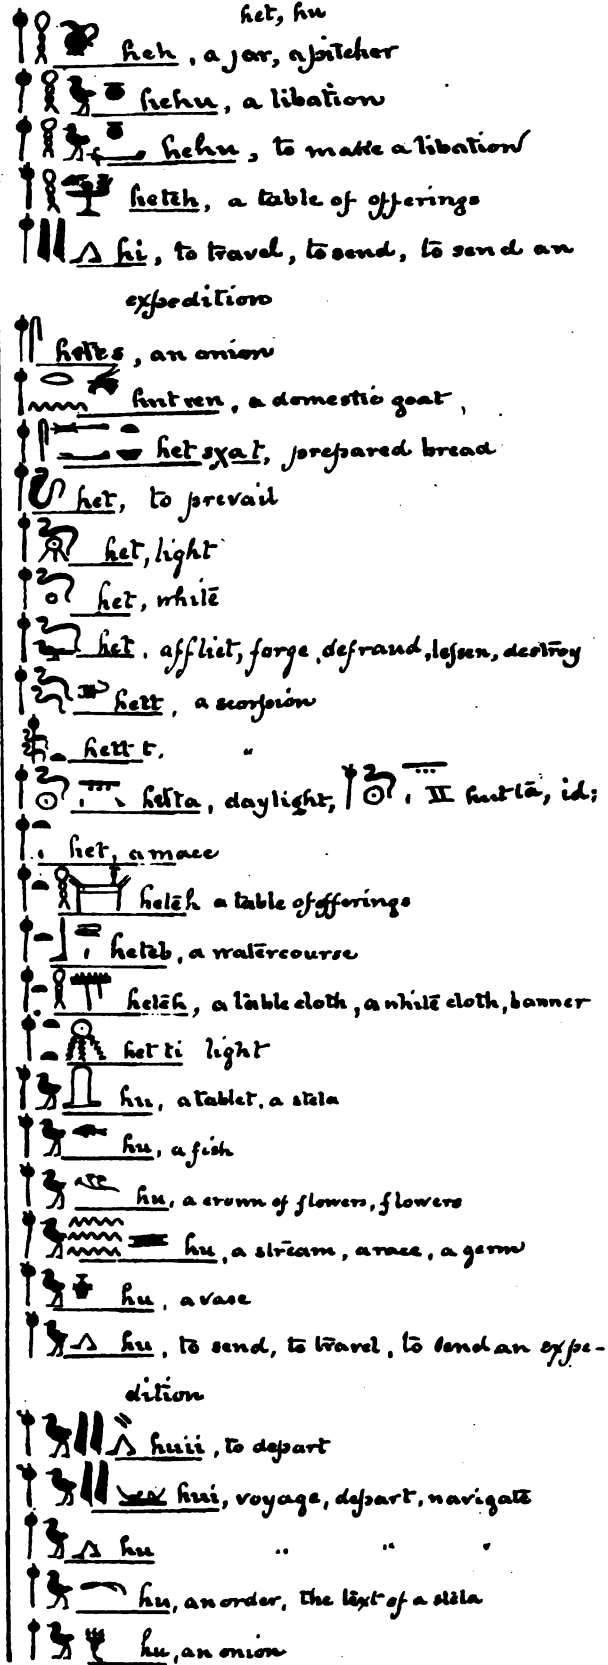 het, hu
heh, a jar, a pitcher
hehu, a libation
hehu, to make a libation
heteh, a table of offerings
hi, to travel, to send, to send an
expedition
an onion
hut ren, a domestic goat,
het sχat, prepared bread
het, to prevail
het, light
het, white
het. afflict, forge, defraud, lessen, destroy
hett, a scorpion
hett t. "
daylight, id;
het, a mace
heteh a table of offerings
heteb, a watercourse
heteh, a table cloth, a white cloth, banner
het ti light
hu, a tablet, a stela
hu, a fish
hu, a crown of flowers, flowers
hu, a stream, a race, a germ
hu, a vase
hu, to send, to travel, to send an expe-
dition
huii, to depart
hui, voyage, depart, navigate
hu " " "
hu, an order, the text of a stela
hu, an onion